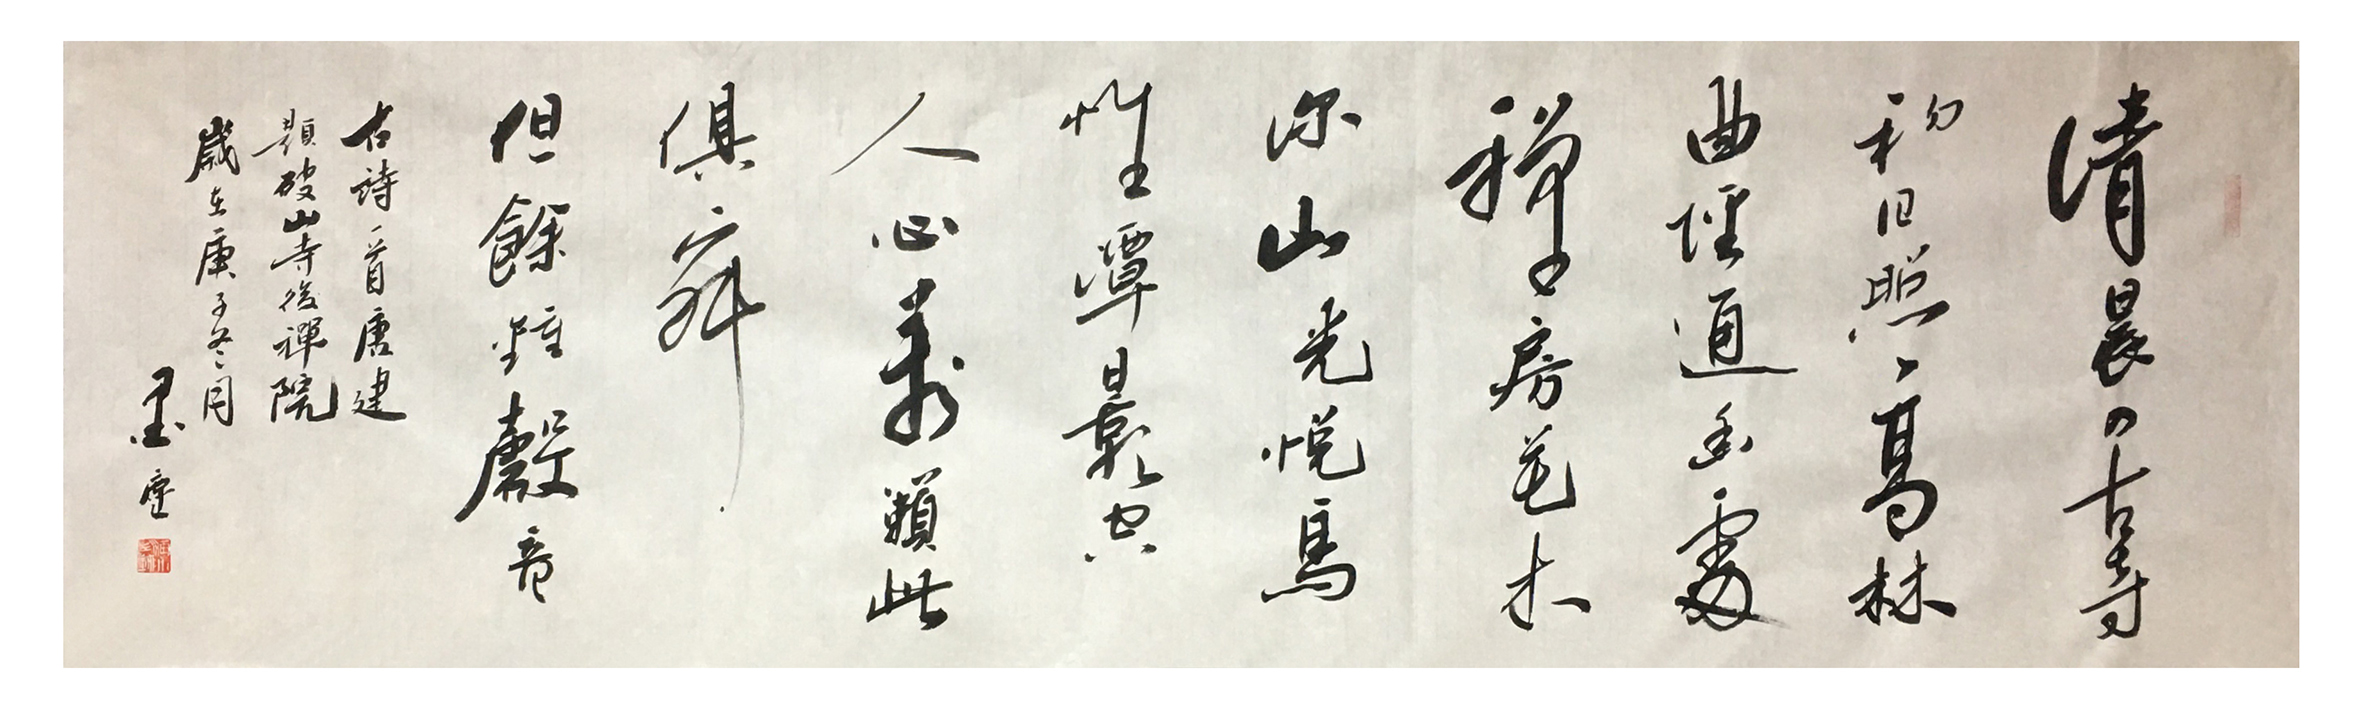 清晨入古寺
初日照高林
曲徑通幽處
禪房花木
深山光悦鳥
性潭影空
人心萬籟此
俱寂
但餘鐘磬音
古詩一首唐建
題破山寺後禪院
歲在庚子冬月
墨